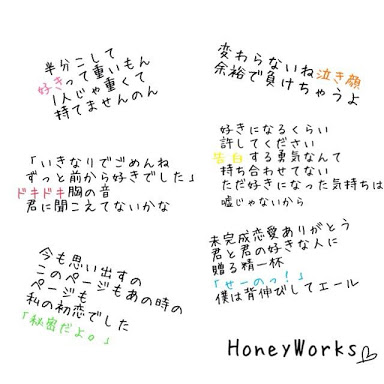 半分こして
好きって重いもん
1人じゃ重くて
持てませんのん
変わらないね泣き顔
余裕で負けちゃうよ
「いきなりでごめんね
ずっと前から好きでした」
ドキドキ胸の音
君に聞こえてないかな
好きになるくらい
許してください
告白する勇気なんて
持ち合わせてない
ただ好きになった気持ちは
嘘じゃないから
今も思い出すの
このページもあの時の
ページも
私の初恋でした
「秘密だよ。」
未完成恋愛ありがとう
君と君の好きな人に
贈る精一杯
「せーのっ!」
僕は背伸びしてエール
HoneyWorks